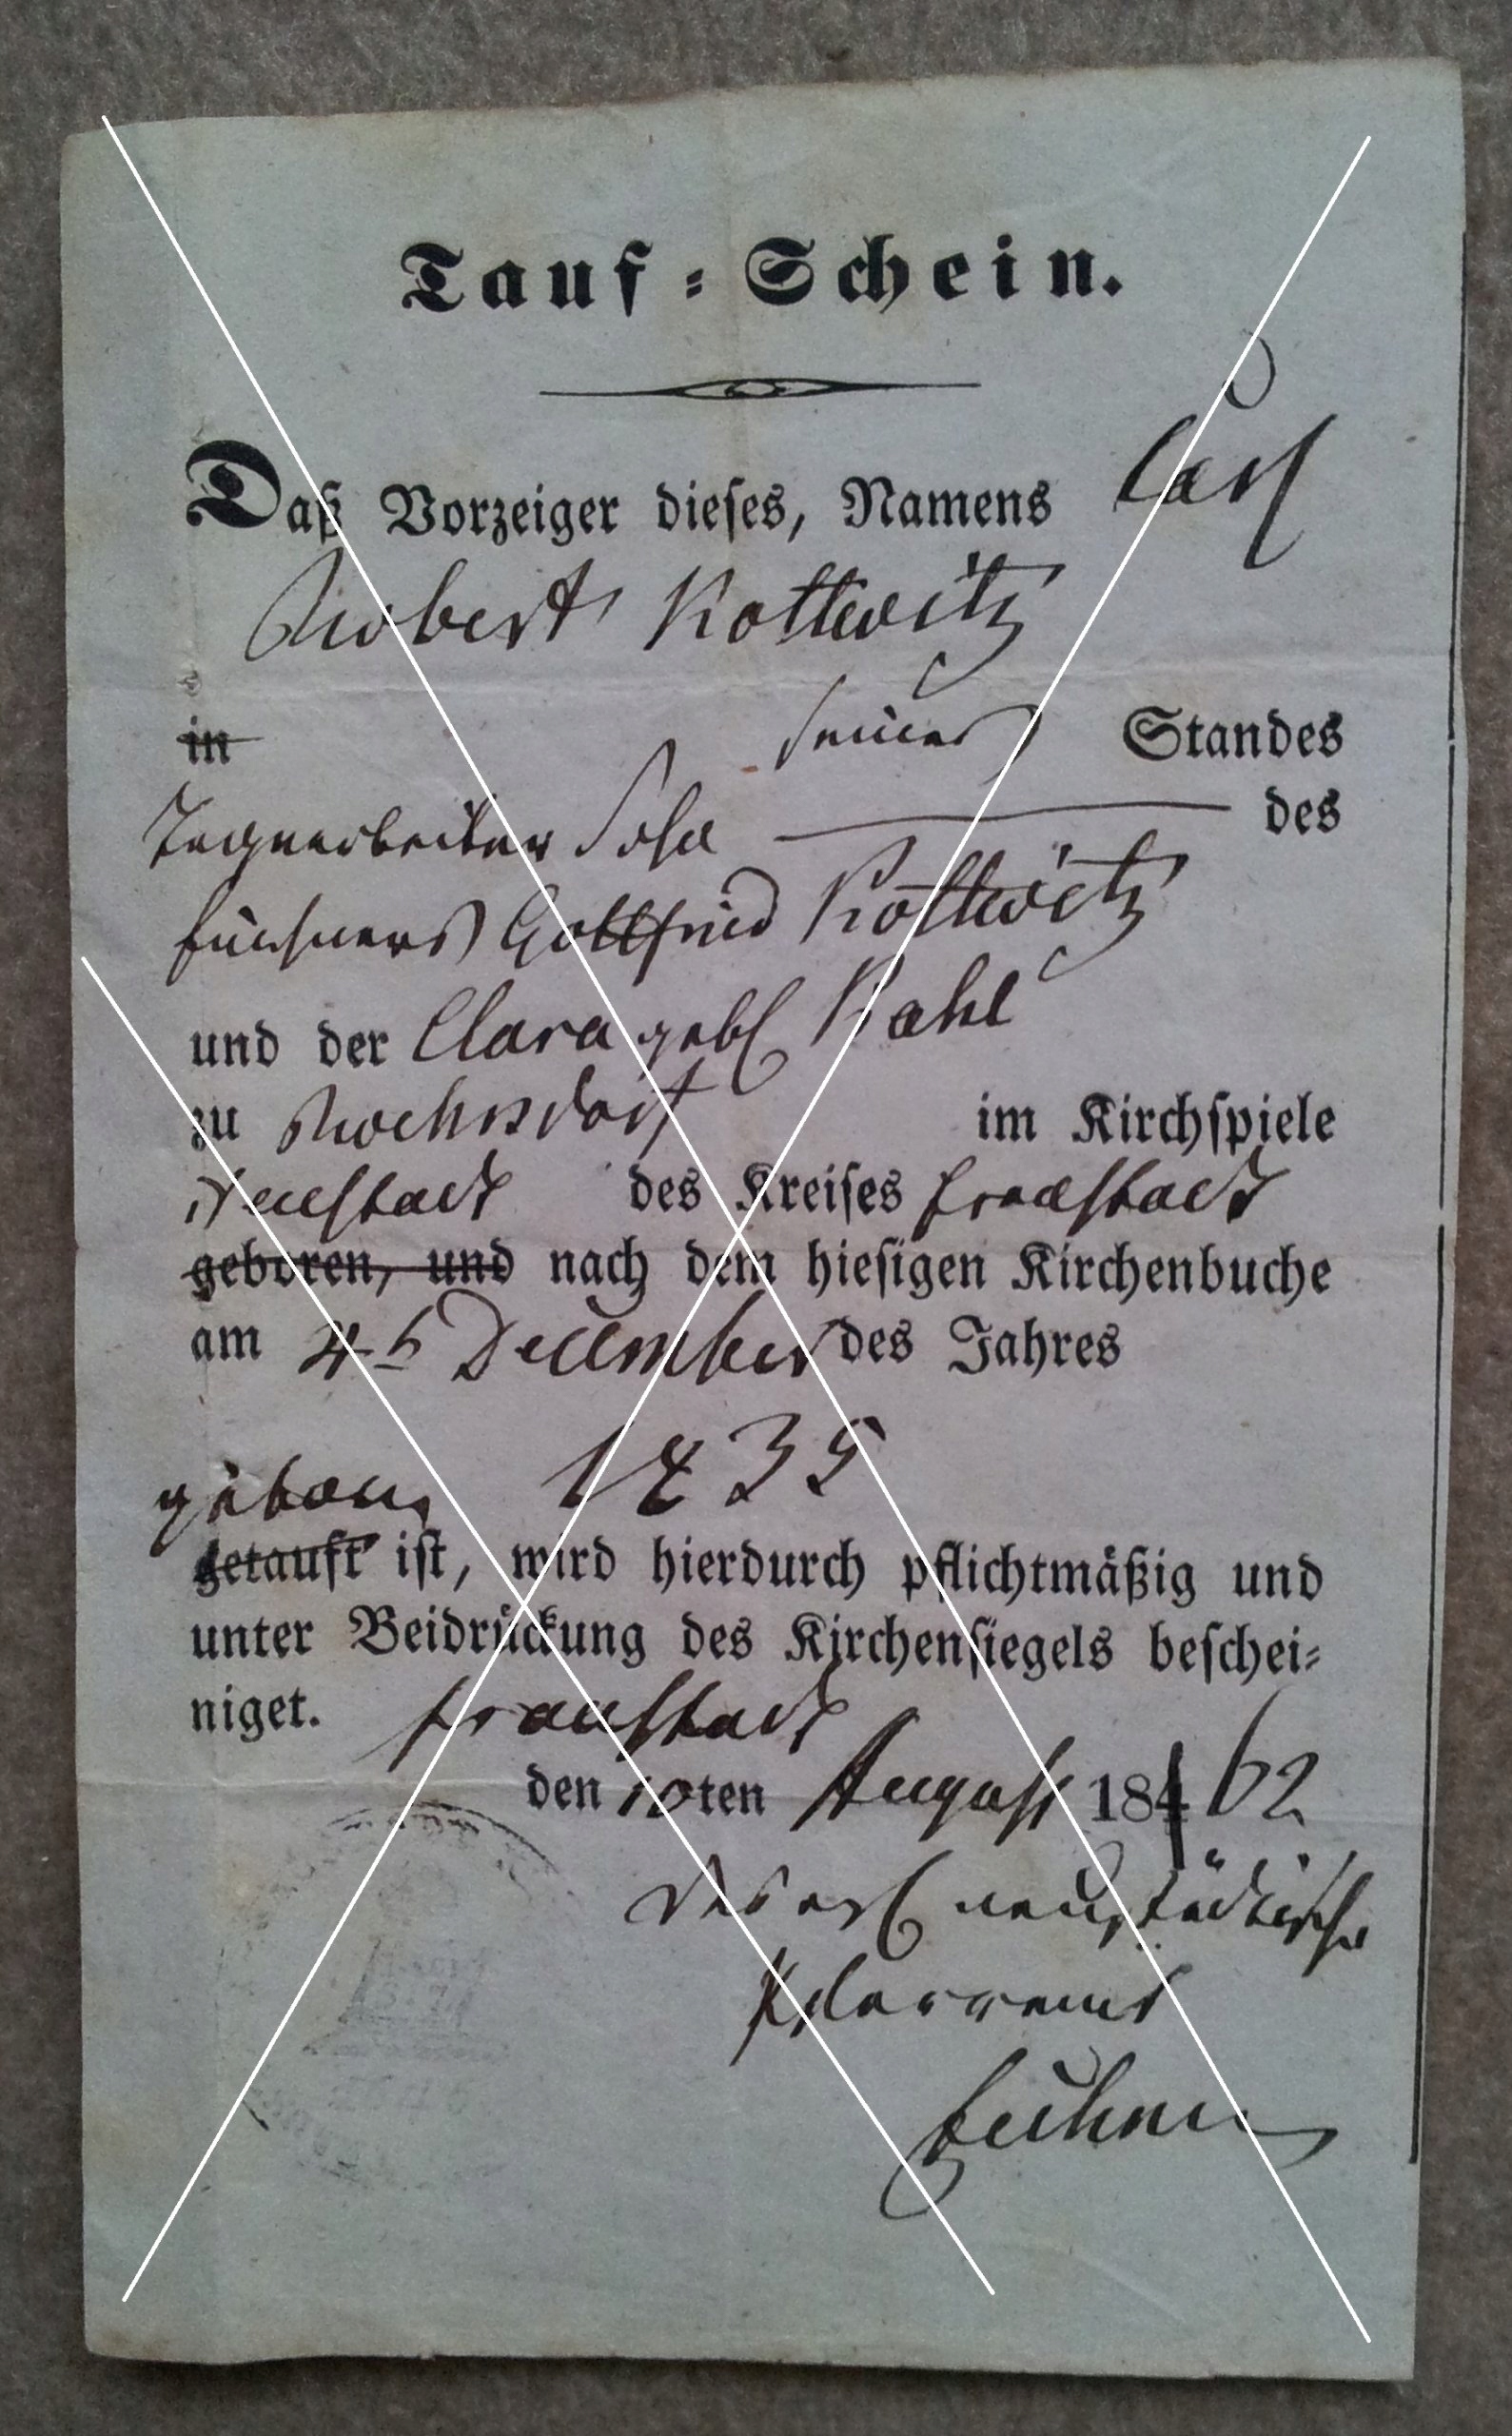 Tauf-Schein.
Daß Vorzeiger dieses, Namens Carl
Robert Kottwitz
in seines Standes
Tagearbeiter Sohn des
Gottfried Kottwitz
und der Clara geb Kahl
zu im Kirchspiele
Neustadt des Kreises Fraustadt
geboren, und nach dem hiesigen Kirchenbuche
am 4t December des Jahres
1835
geboren
getauft ist, wird hierdurch pflichtmäßig und
unter Beidrückung des Kirchensiegels beschei-
niget. Fraustadt
den 10ten August 184 62
Das ev neustädtische
Pfarramt